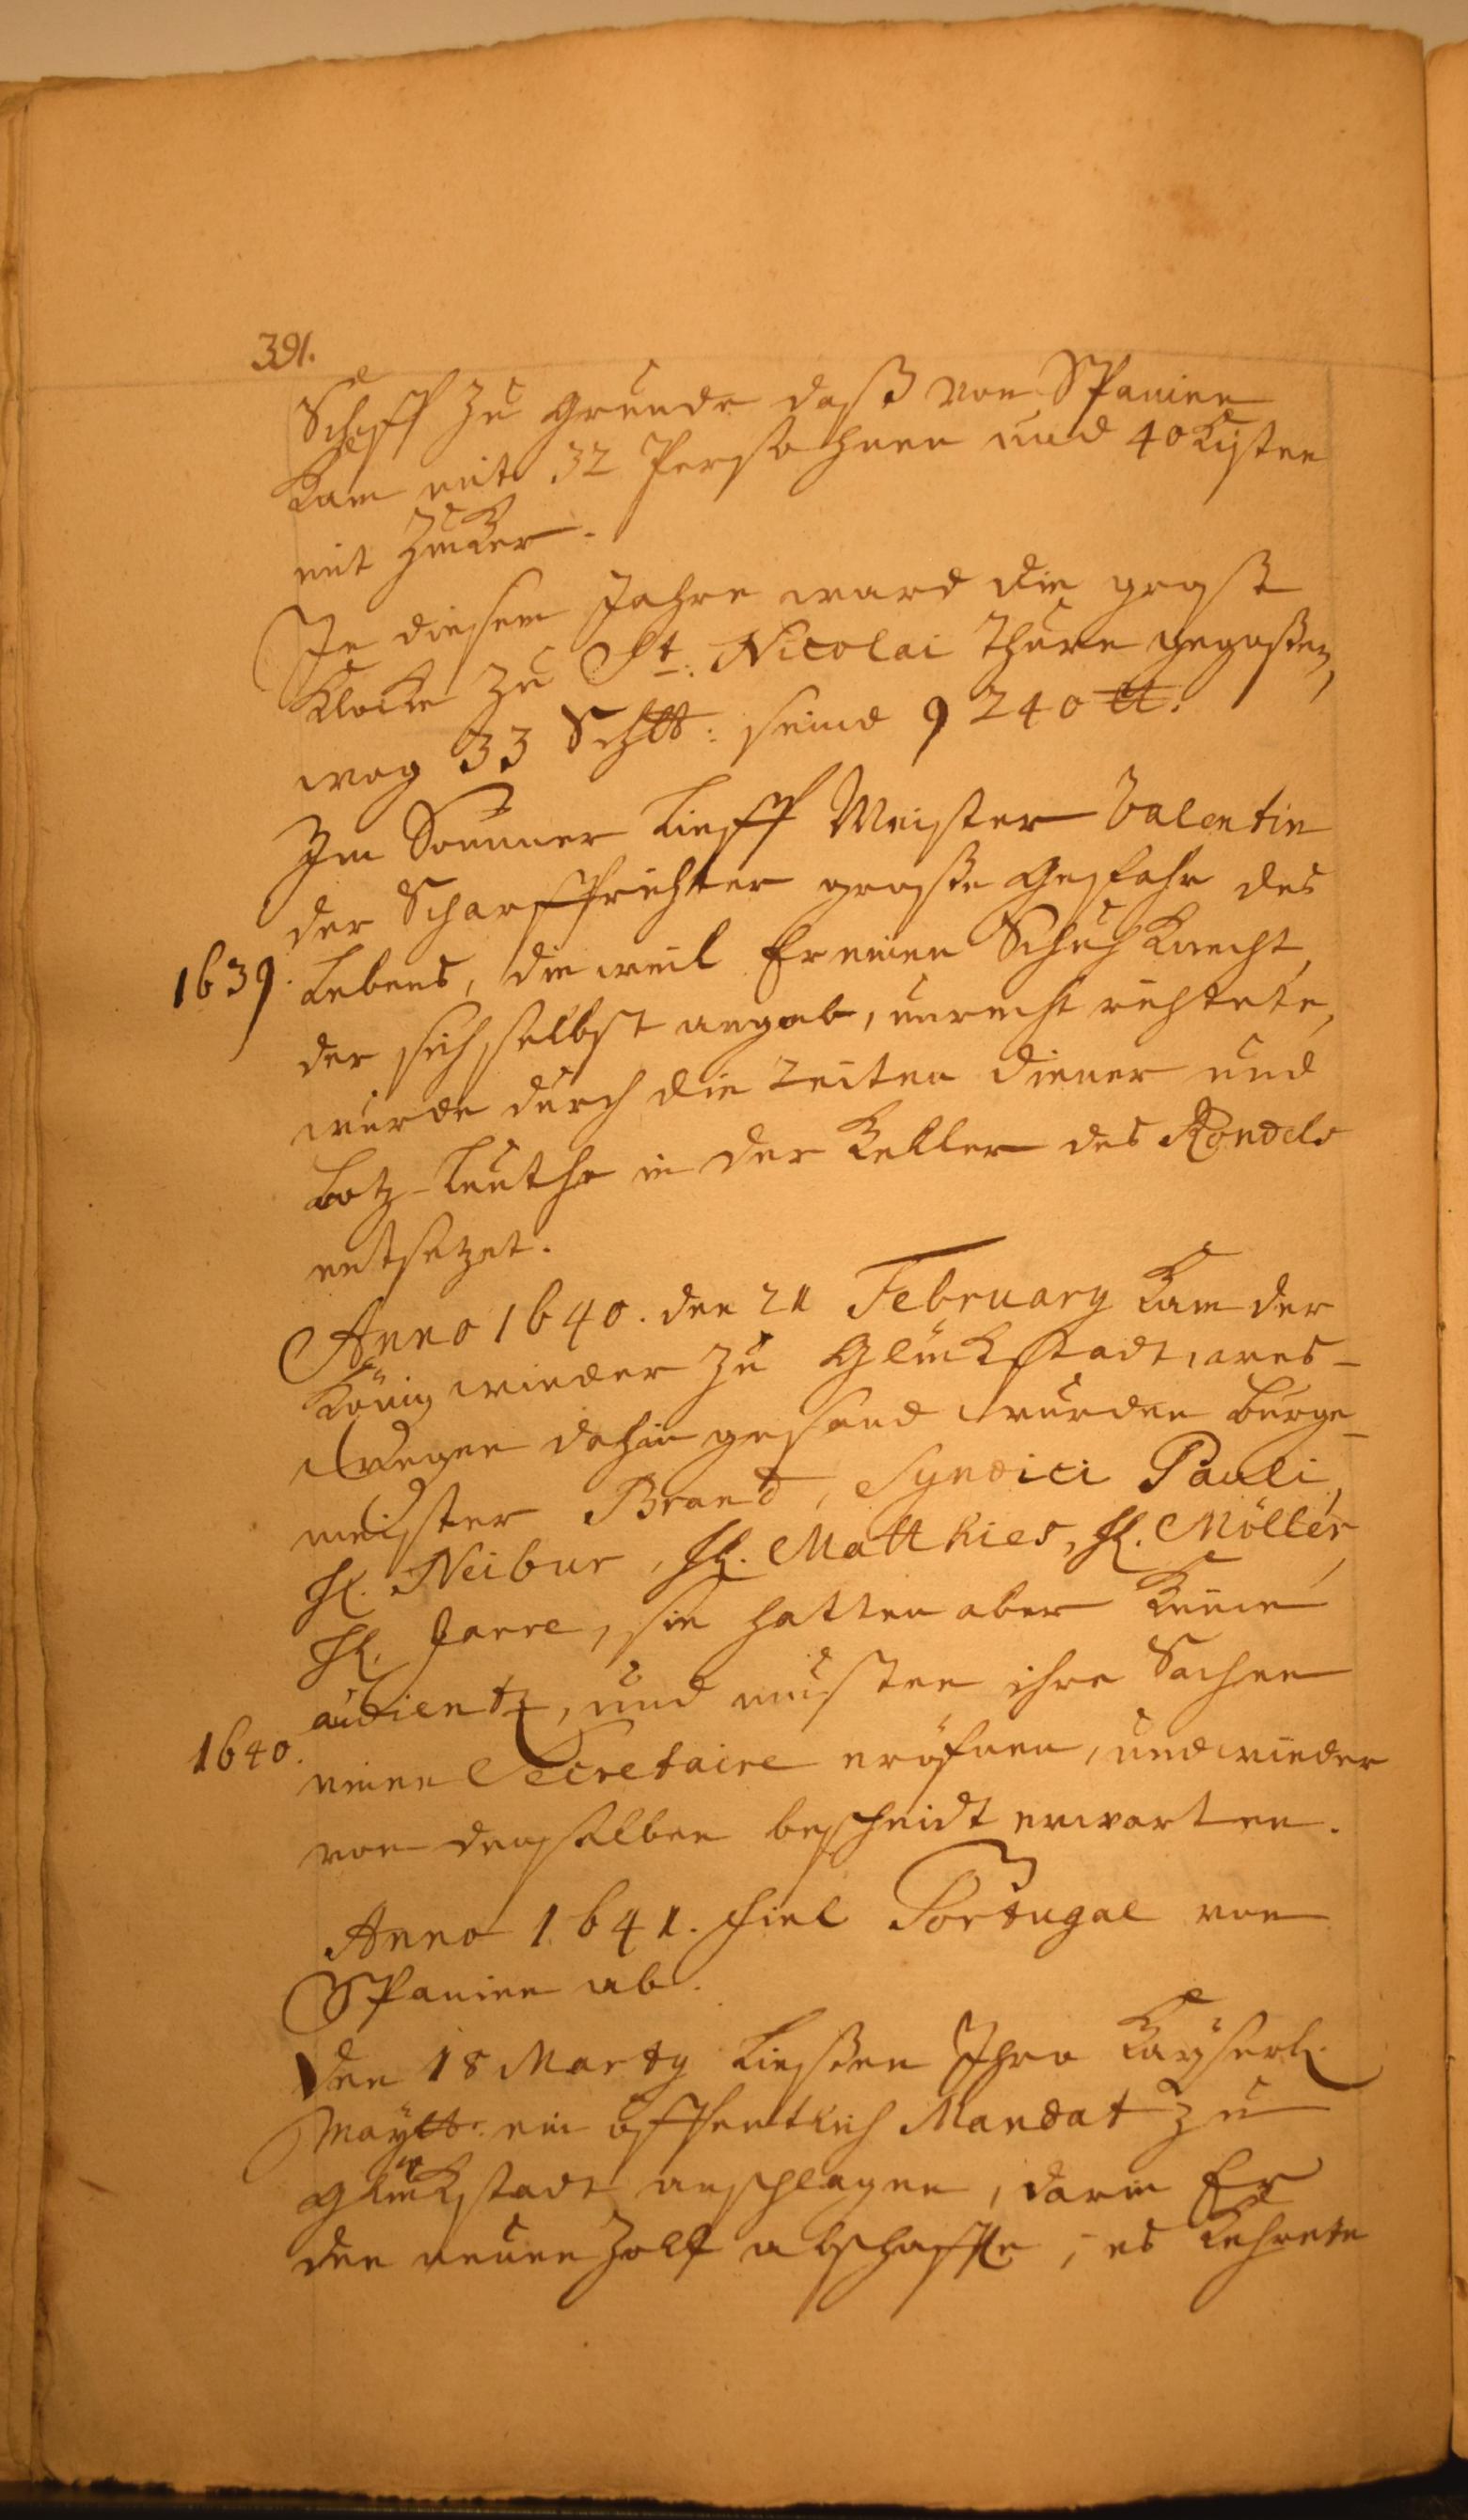 391.
Schiff zu Grunde daß von Spanien
kam mit 32 Persohnen und 40 Kisten
mit Zucker.
In diesem Jahre ward die große
Klocke zu St: Nicolai Thurn gegoßen,
wog 33 Sch℔: seind 9240 ℔.
Im Sommer lieff Meister Valentin
der Scharffrichter große Gefahr des
1639. Lebens, die weil Er einen Schuch Knecht,
der sich selbst angab, unrecht richtete,
wurde durch die reiten diener und
Lotz-Leuthe in der Keller des Rondels
entsezet.
Anno 1640. den 21 February kam der
König wieder zu Glückstadt, wes-
wegen dahin gesand wurden bürge-
meister Brand, Syndici Pauli,
H. Neibur, H. Matthies, H. Möller,
H. Jarre, sie hatten aber keine
audientz, und musten ihre Sachen
1640. einen Secretaire eröfnen, und wieder
von demselben bescheidt erwarten.
Anno 1641. fiel Portugal von
Spanien ab.
Den 18 Marty ließen Ihro Kayserl.
Maytt: ein öffentlich Mandat zu
Glückstadt anschlagen, darin Er
den neuen Zoll abschaffte, es kehrete